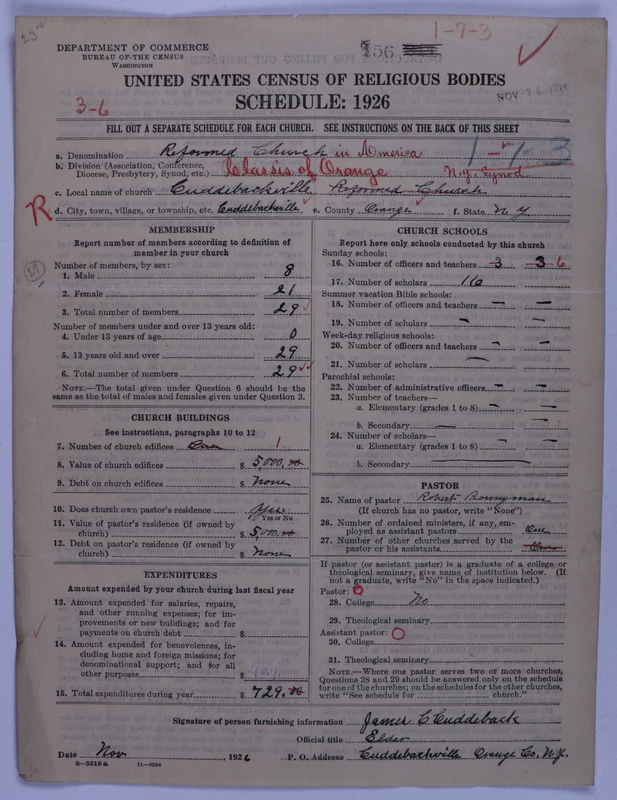 1-7-3
DEPARTMENT OF COMMERCE
BUREAU OF THE CENSUS
WASHINGTON
156
UNITED STATES CENSUS OF RELIGIOUS BODIES
SCHEDULE: 1926
NOV 26
3-6
FILL OUT A SEPARATE SCHEDULE FOR EACH CHURCH. SEE INSTRUCTIONS ON THE BACK OF THIS SHEET
a. Denomination Reformed Church in America 1-7-3
b. Division (Association, Conference, Diocese, Presbytery, Synod, etc.) Classis of Orange N.Y. Synod
c. Local name of church Cuddebackville Reformed Church
R
d. City, town, village, or township, etc. Cuddebackville e. County Orange f. State N.Y
MEMBERSHIP
Report number of members according to definition of member in your church
Number of members, by sex:
1. Male 8
2. Female 21
3. Total number of members 29
Number of members under and over 13 years old:
4. Under 13 years of age 0
5. 13 years old and over 29
6. Total number of members 29
NOTE.—The total given under Question 6 should be the same as the total of males and females given under Question 3.
CHURCH BUILDINGS
See instructions, paragraphs 10 to 12
7. Number of church edifices One 1
8. Value of church edifices $ 5,000.00
9. Debt on church edifices $ None
10. Does church own pastor's residence Yes
Yes or No
11. Value of pastor's residence (if owned by church) $ 5,000.00
12. Debt on pastor's residence (if owned by church) $ None
EXPENDITURES
Amount expended by your church during last fiscal year
13. Amount expended for salaries, repairs, and other running expenses; for improvements or new buildings; and for payments on church debt $
14. Amount expended for benevolences, including home and foreign missions; for denominational support; and for all other purposes $
15. Total expenditures during year $ 729.00
CHURCH SCHOOLS
Report here only schools conducted by this church
Sunday schools:
16. Number of officers and teachers 3 3 6
17. Number of scholars 16
Summer vacation Bible schools:
18. Number of officers and teachers — —
19. Number of scholars — —
Week-day religious schools:
20. Number of officers and teachers — —
21. Number of scholars —
Parochial schools:
22. Number of administrative officers — —
23. Number of teachers—
a. Elementary (grades 1 to 8) — —
b. Secondary — —
24. Number of scholars—
a. Elementary (grades 1 to 8) — —
b. Secondary —
PASTOR
25. Name of pastor Robert Bonnyman
(If church has no pastor, write "None")
26. Number of ordained ministers, if any, employed as assistant pastors One
27. Number of other churches served by the pastor or his assistants
If pastor (or assistant pastor) is a graduate of a college or theological seminary, give name of institution below. (If not a graduate, write "No" in the space indicated.)
Pastor:
28. College No
29. Theological seminary
Assistant pastor:
30. College
31. Theological seminary
NOTE.—Where one pastor serves two or more churches, Questions 28 and 29 should be answered only on the schedule for one of the churches; on the schedules for the other churches, write "See schedule for church."
Signature of person furnishing information James C Cuddeback
Official title Elder
Date Nov , 1926 P. O. Address Cuddebackville Orange Co. N.Y.
8-5518 a 11-8034